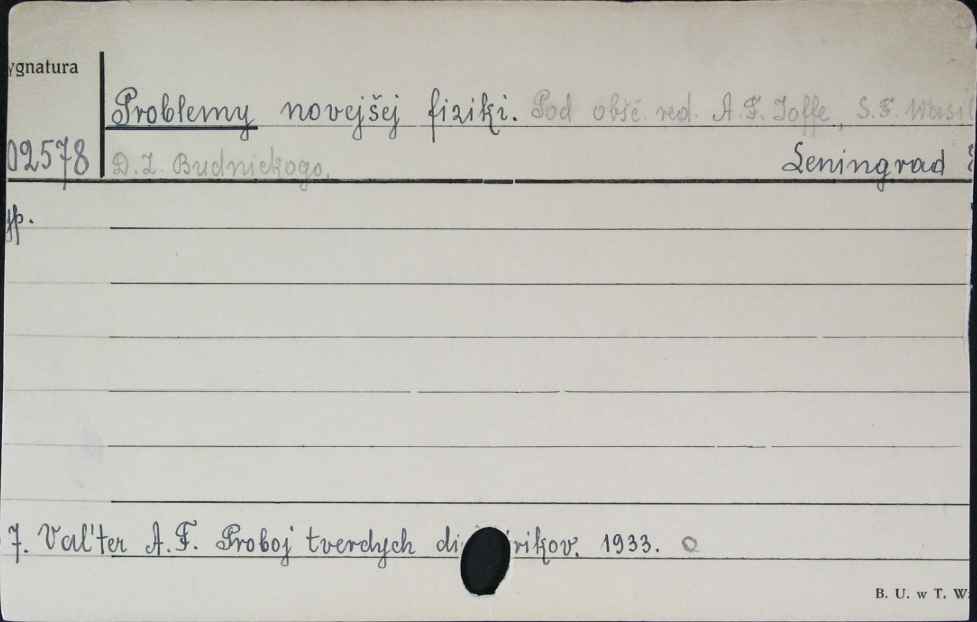 ygnatura
Problemy novejšej fiziki. Pod obšč. red. A.F. Joffe, S.F. Wasil
02578 D.Z. Budnickogo. Leningrad
yp.
7. Val'ter A.F. Proboj tverdych di rikov. 1933. o
B. U. w T. W.